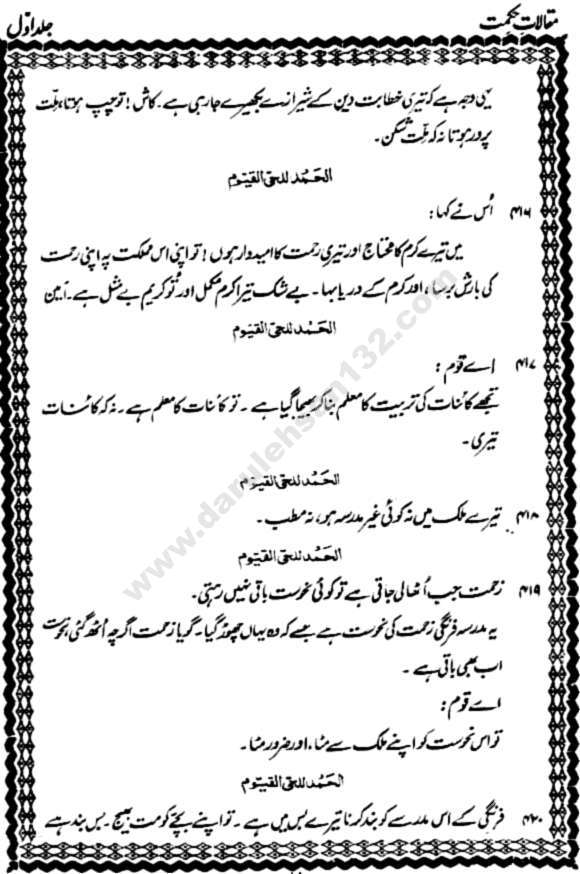 مقالات حکمت
جلد اوّل
یہی وجہ ہے کہ تیری خطابت دین کے شیرازے بکھیرے جا رہی ہے۔ کاش! تو چپ ہوتا، ملّت
پرور ہوتا نہ کہ ملّت شکن۔
الحَمُد للحیّ القیّوم
۴۱۶ اُس نے کہا:
میں تیرے کرم کا محتاج اور تیری رحمت کا امیدوار ہوں! تو اپنی اس مملکت پہ اپنی رحمت
کی بارش برسا، اور کرم کے دریا بہا۔ بے شک تیرا کرم مکمل اور تُو کریم بے مثل ہے۔ آمین
الحَمُد للحیّ القیّوم
۴۱۷ اے قوم:
تجھے کائنات کی تربیت کا معلم بنا کر بھیجا گیا ہے۔ تو کائنات کا معلم ہے۔ نہ کہ کائنات
تیری۔
الحَمُد للحیّ القیّوم
۴۱۸ تیرے ملک میں نہ کوئی غیر مدرسہ ہو، نہ مطب۔
الحَمُد للحیّ القیّوم
۴۱۹ زحمت جب اُٹھا لی جاتی ہے تو کوئی نحوست باقی نہیں رہتی۔
یہ مدرسہ فرنگی زحمت کی نحوست ہے جسے کہ وہ یہاں چھوڑ گیا۔ گویا زحمت اگرچہ اُٹھ گئی، نحوست
اب بھی باقی ہے۔
اے قوم:
تو اس نحوست کو اپنے ملک سے مٹا، اور ضرور مٹا۔
الحَمُد للحیّ القیّوم
۴۲۰ فرنگی کے اس مدرسے کو بند کرنا تیرے بس میں ہے۔ تو اپنے بچّے کو مت بھیج۔ بس بند ہے
www.darulehsan132.com